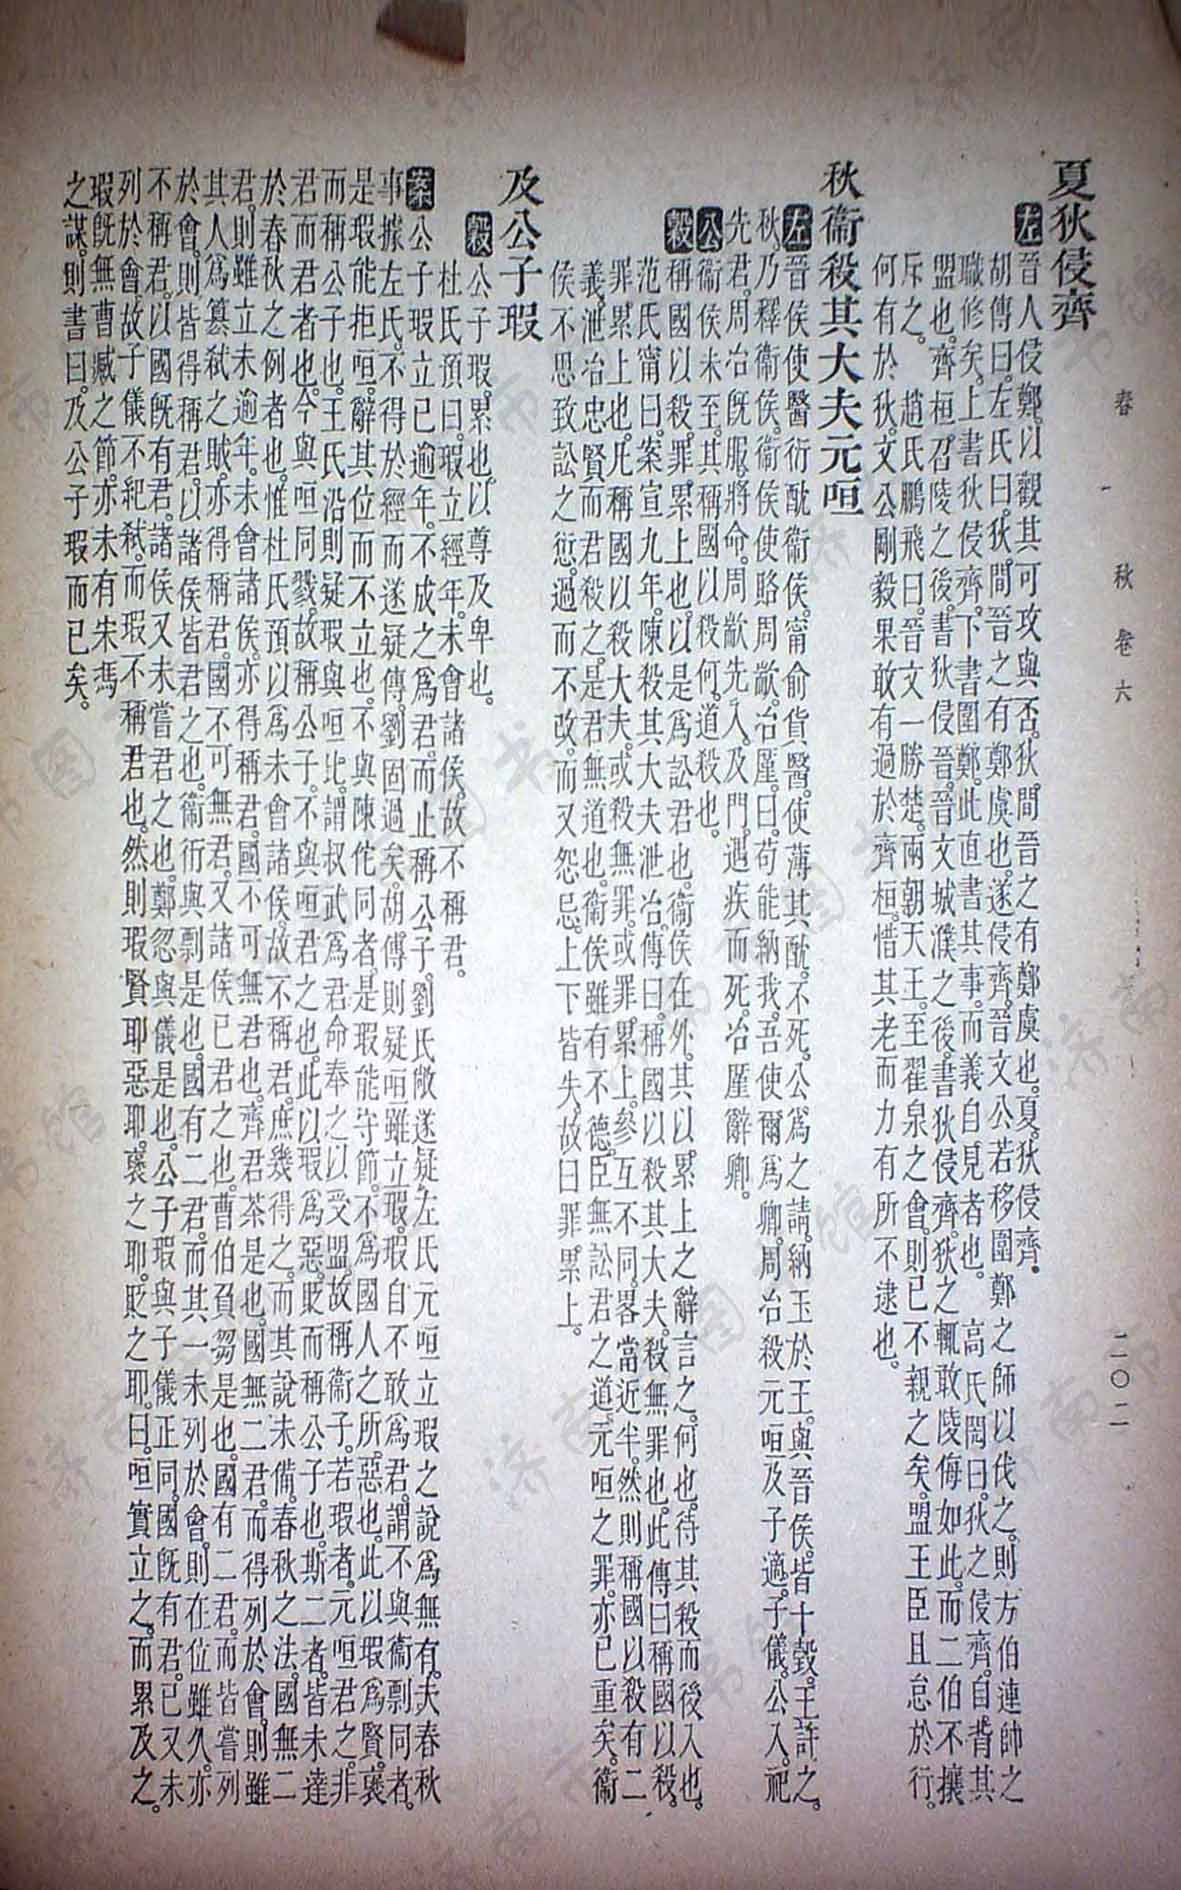 春秋卷六
二〇二
夏狄侵齊
左晉人侵鄭。以觀其可攻與否。狄間晉之有鄭虞也。夏。狄侵齊。
胡傳曰。左氏曰。狄間晉之有鄭虞也。遂侵齊。晉文公若移圍鄭之師以伐之。則方伯連帥之
職修矣。上書狄侵齊。下書圍鄭。此直書其事。而義自見者也。高氏閌曰。狄之侵齊。自背其
盟也。齊桓召陵之後。書狄侵晉。晉文城濮之後。書狄侵齊。狄之輒敢陵侮如此。而二伯不攘
斥之。趙氏鵬飛曰。晉文一勝楚。兩朝天王。至翟泉之會。則已不親之矣。盟王臣且怠於行。
何有於狄。文公剛毅果敢有過於齊桓。惜其老而力有所不逮也。
秋衞殺其大夫元咺
左晉侯使醫衍酖衞侯。甯俞貨醫。使薄其酖。不死。公爲之請。納玉於王。與晉侯。皆十瑴。王許之。
秋。乃釋衞侯。衞侯使賂周歂。冶廑。曰。苟能納我。吾使爾爲卿。周冶殺元咺及子適。子儀。公入。祀
先君。周冶旣服。將命。周歂先入。及門。遇疾而死。冶廑辭卿。
公衞侯未至。其稱國以殺何。道殺也。
穀稱國以殺。罪累上也。以是爲訟君也。衞侯在外。其以累上之辭言之。何也。待其殺而後入也。
范氏甯曰。案宣九年。陳殺其大夫泄冶。傳曰。稱國以殺其大夫。殺無罪也。此傳曰稱國以殺。
罪累上也。凡稱國以殺大夫。或殺無罪。或罪累上。參互不同。畧當近半。然則稱國以殺有二
義。泄冶忠賢而君殺之。是君無道也。衞侯雖有不德。臣無訟君之道。元咺之罪。亦已重矣。衞
侯不思致訟之愆。過而不改。而又怨忌。上下皆失。故曰罪累上。
及公子瑕
穀公子瑕。累也。以尊及卑也。
杜氏預曰。瑕立經年。未會諸侯。故不稱君。
案公子瑕立已逾年。不成之爲君。而止稱公子。劉氏敞遂疑左氏元咺立瑕之說爲無有。夫春秋
事據左氏。不得於經而遂疑傳。劉固過矣。胡傳則疑咺雖立瑕。瑕自不敢爲君。謂不與衞剽同者。
是瑕能拒咺。辭其位而不立也。不與陳佗同者。是瑕能守節。不爲國人之所惡也。此以瑕爲賢。褒
而稱公子也。王氏沿則疑瑕與咺比。謂叔武爲君命奉之以受盟。故稱衞子。若瑕者。元咺君之。非
君而君者也。今與咺同戮。故稱公子。不與咺君之也。此以瑕爲惡。貶而稱公子也。斯二者。皆未達
於春秋之例者也。惟杜氏預以爲未會諸侯。故不稱君。庶幾得之。而其說未備。春秋之法。國無二
君。則雖立未逾年。未會諸侯。亦得稱君。國不可無君也。齊君荼是也。國無二君。而得列於會。則雖
其人爲簒弒之賊。亦得稱君。國不可無君。又諸侯已君之也。曹伯負芻是也。國有二君。而皆嘗列
於會。則皆得稱君。以諸侯皆君之也。衞衎與剽是也。國有二君。而其一未列於會。則在位雖久。亦
不稱君。以國旣有君。諸侯又未嘗君之也。鄭忽與儀是也。公子瑕與子儀正同。國旣有君。已又未
列於會。故子儀不紀弒。而瑕不稱君也。然則瑕賢耶惡耶。褒之耶。貶之耶。曰。咺實立之。而累及之。
瑕旣無曹臧之節。亦未有朱馮
之謀。則書曰。及公子瑕而已矣。